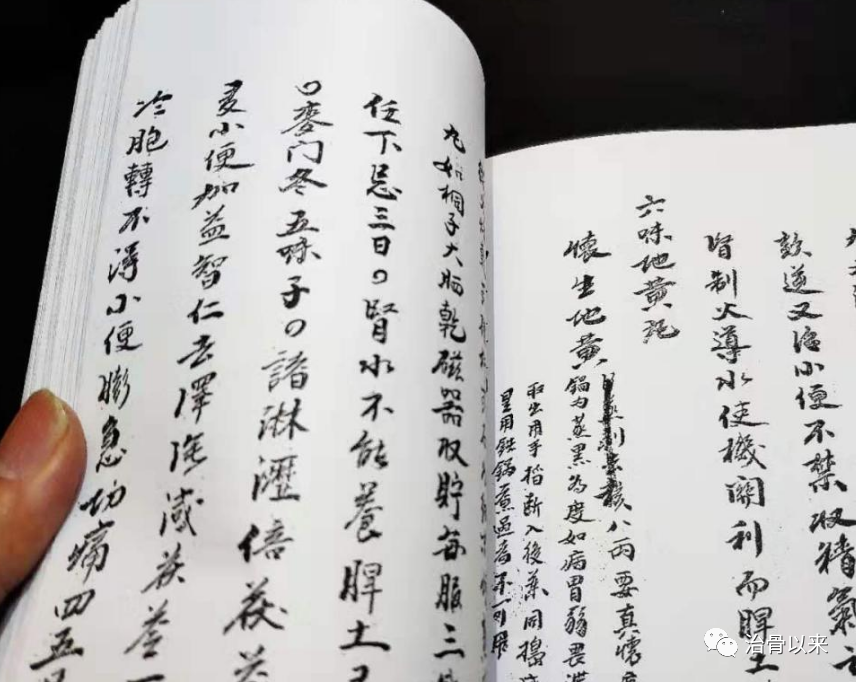 又治小便不禁收精氣
腎制火導水使機關利而脾土
六味地黃
懷生地黃
八兩要真懷
鍋內蒸黑為度如病胃弱畏
取出用手掐斷入後藥同搗
用鉄鍋煮過
丸如桐子大晒乾磁器收貯每服三
任下忌三日。腎水不能養脾土
。麥门冬五味子。諸淋瀝倍茯苓
小便加益智仁去澤瀉減茯苓
冷胞轉不得小便膨急切痛四五
治骨以来